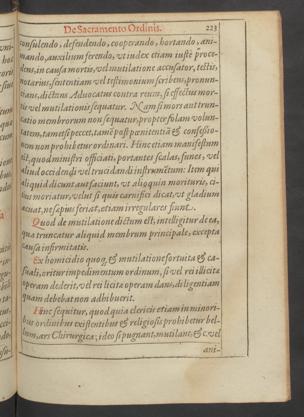 De Sacramento Ordinis. 223
consulendo, defendendo, cooperando, hortando, ani-
mando, auxilium ferendo, vt iudex etiam iustè proce-
dens, in causa mortis, vel mutilatione accusator, testis,
notarius, sententiam vel testimonium scribens, pronun-
cians, dictans Aduocatus contra reum, si effectus mor-
tis vel mutilationis sequatur. Nam si mors aut trun-
catio membrorum non sequatur, propter solam volun-
tatem, tametsi peccet, tamē post pœnitentiā & confessio-
nem non prohibetur ordinari. Hinc etiam manifestum
est, quod ministri officiati, portantes scalas, funes, vel
aliud occidendi vel trucidandi instrumētum: Item qui
aliquid dicunt aut faciunt, vt alioquin moriturus, ci-
tius moriatur, velut si quis carnifici dicat, vt gladium
acuat, ne sæpius feriat, etiam irregulares sunt.
Quod de mutilatione dictum est, intelligitur de ea,
qua truncatur aliquid membrum principale, excepta
causa infirmitatis.
Ex homicidio quoq; & mutilatione fortuita & ca-
suali, oritur impedimentum ordinum, si vel rei illicita
operam dederit, vel rei licita operam dans, diligentiam
quam debebat non adhibuerit.
Hinc sequitur, quod quia clericis etiam in minori-
bus ordinibus existentibus & religiosis prohibetur bel-
lum, ars Chirurgica; ideo si pugnant, mutilant, & c. vel